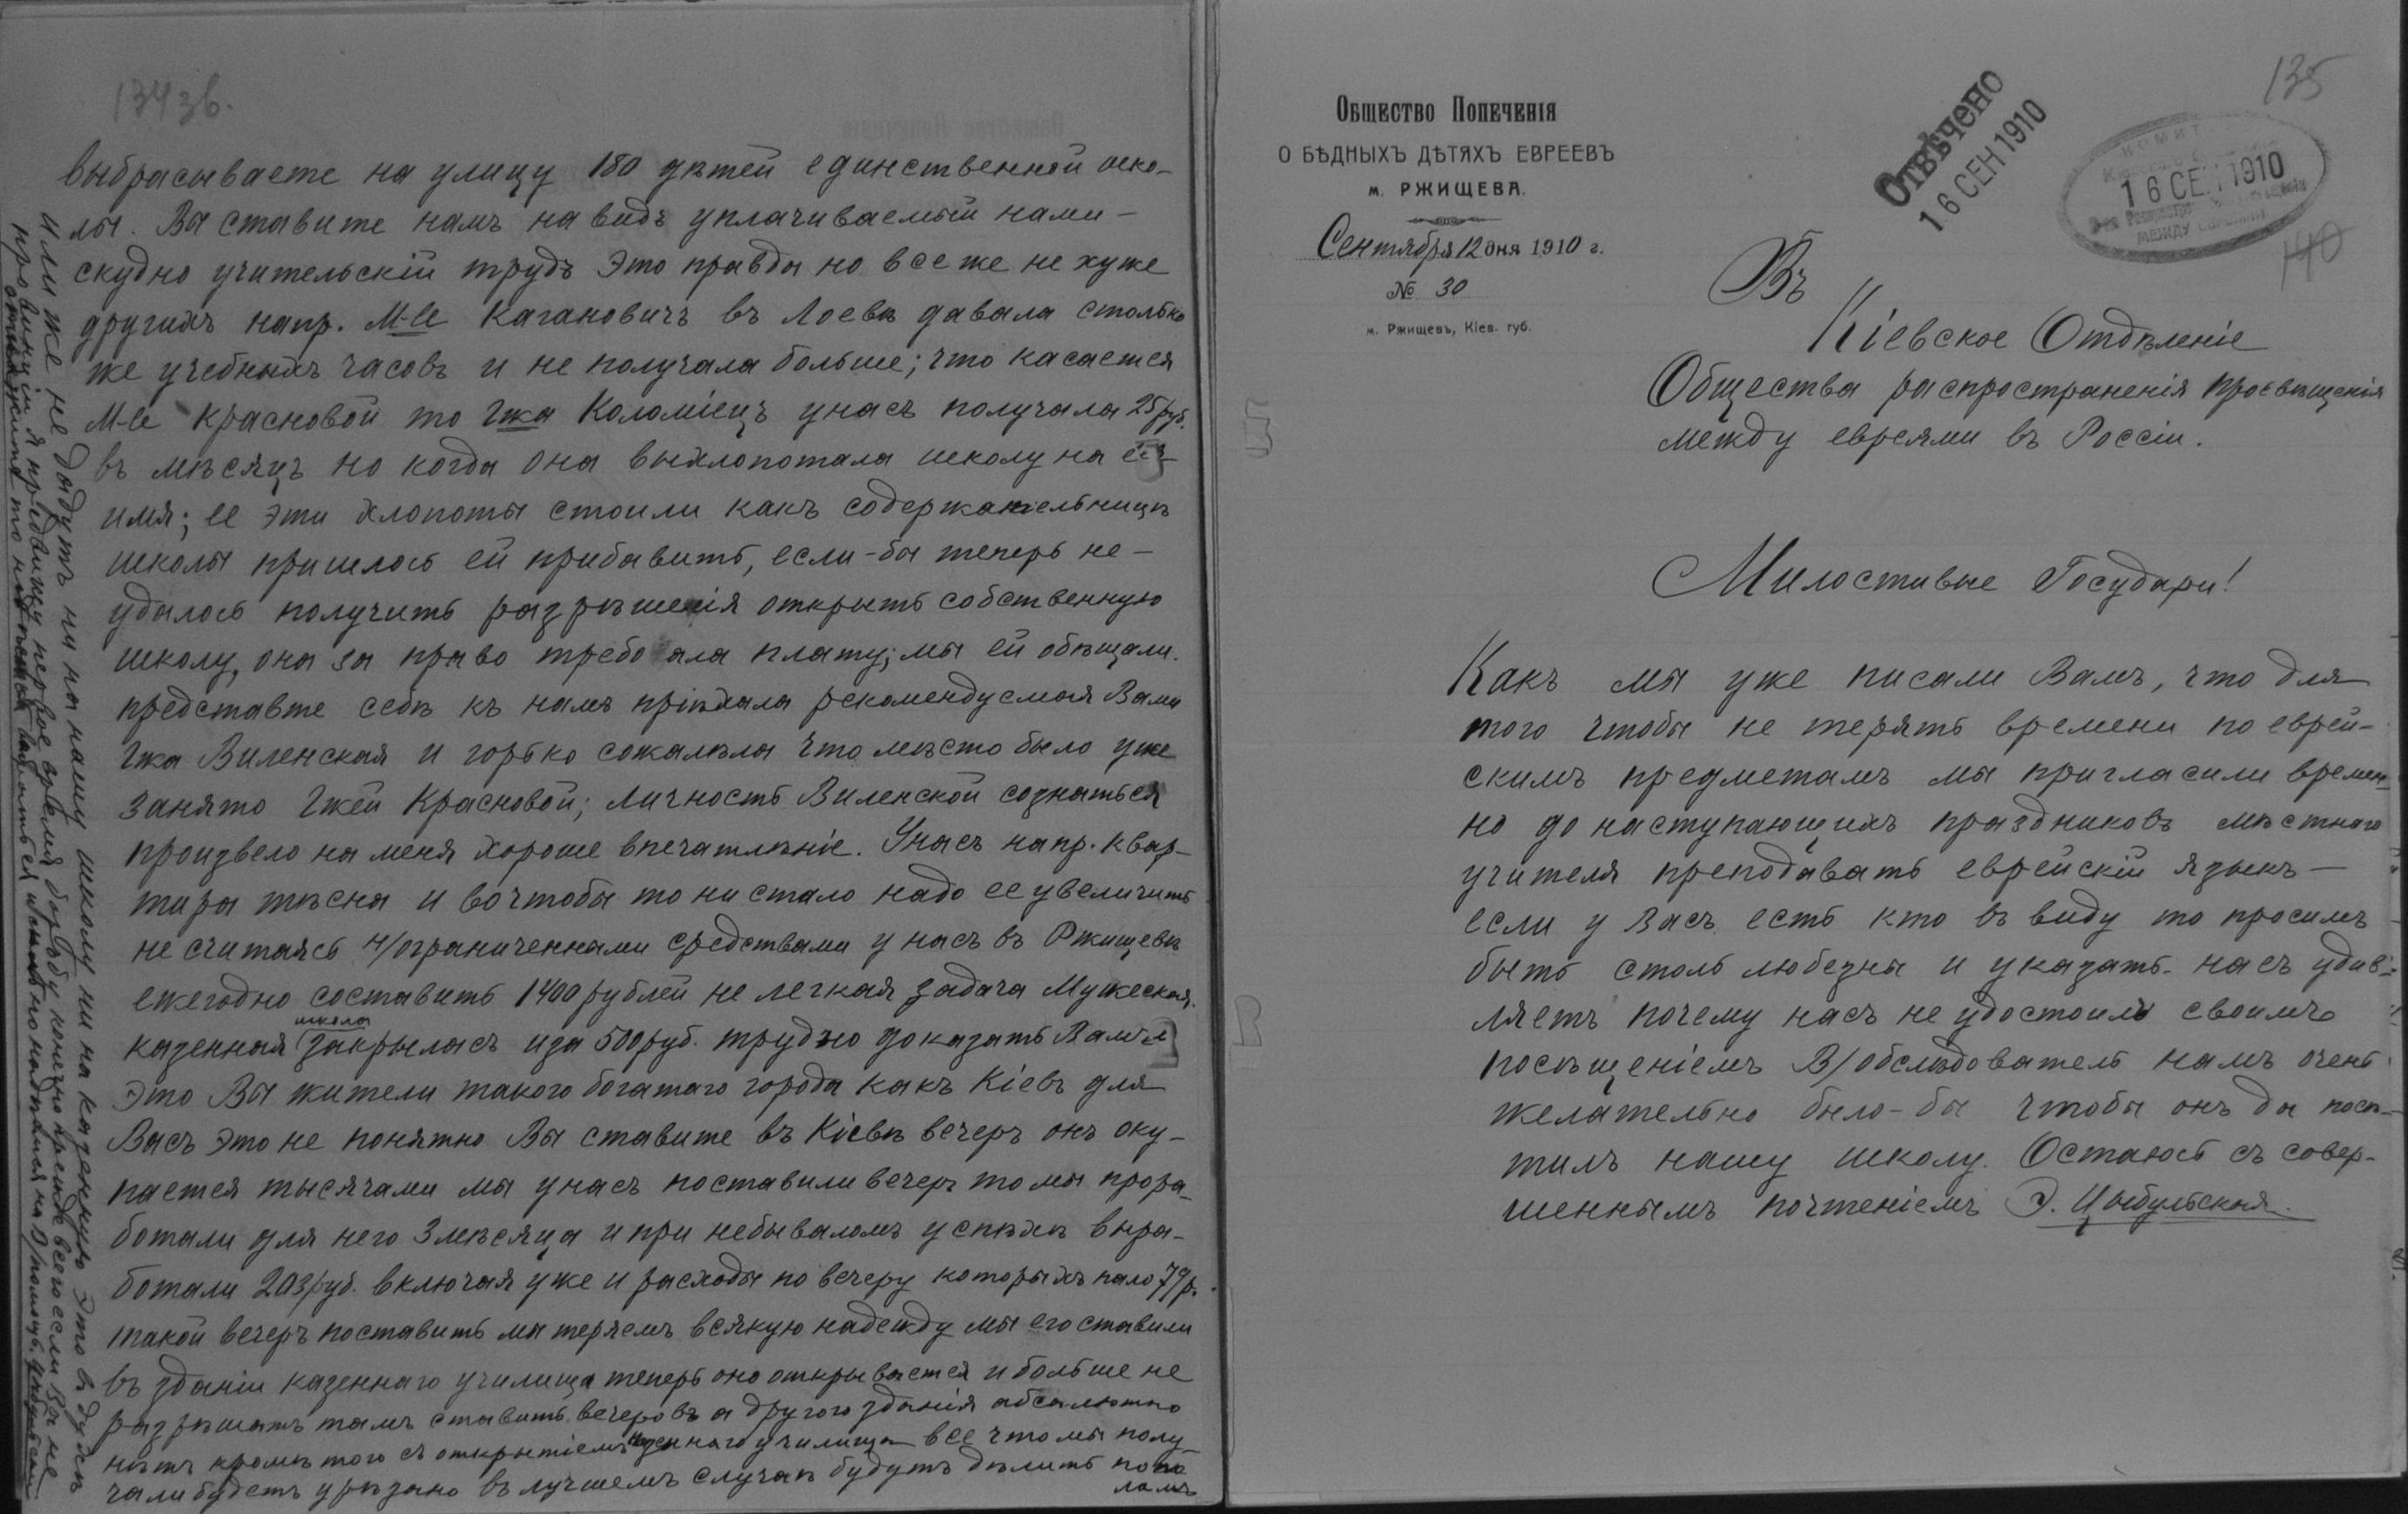 134 зв.
выбрасываете на улицу 180 дѣтей единственной шко-
лы. Вы ставите намъ на видъ уплачиваемый нами –
скудно учительскій трудъ Это правда но все же не хуже
другихъ напр. М-lle Кагановичъ въ Лоевѣ давала столько
же учебныхъ часовъ и не получала больше; что касается
М-lle Красновой то Гжа Коломіецъ у насъ получала 25 руб.
въ мѣсяцъ но когда она выхлопотала школу на её
имя; ее эти хлопоты стоили какъ содержательницѣ
школы пришлось ей прибавить, если-бы теперь не –
удалось получить разрѣшенія открыть собственную
школу, она за право требовала плату; мы ей обѣщали.
представте себѣ къ намъ пріѣхала рекомендуемая Вами
Гжа Виленская и горько сожалѣла что мѣсто было уже
занято Гжей Красновой; личность Виленской сознаться
произвело на меня хороше впечатлѣніе. У насъ напр. квар-
тира тѣсна и во чтобы то ни стало надо ее увеличить
не считаясь н/ограниченными средствами у насъ въ Ржищевѣ
ежегодно составить 1400 рублей не легкая задача Мужеская
казенная школа закрылась иза 500 руб. трудно доказать Вамъ
Это Вы жители такого богатаго города какъ Кіевъ для
Васъ это не понятно Вы ставите въ Кіевѣ вечеръ онъ оку-
пается тысячами мы у насъ поставили вечеръ то мы прора-
ботали для него 3 мѣсяца и при небываломъ успѣхѣ выра-
ботали 203 руб. включая уже и расходы по вечеру которыхъ пало 79 р.
такой вечеръ поставить мы теряемъ всякую надежду мы его ставили
въ зданіи казеннаго училища теперь оно открывается и больше не
разрѣшатъ тамъ ставить вечеровъ а другого зданія абсалютно
нѣтъ кромѣ того съ открытіемъ казеннаго училища все что мы полу-
чали будетъ урѣзано въ лучшемъ случаѣ будутъ дѣлить попо
ламъ
или же не дадутъ ни на нашу школу ни на казенную Это въ духѣ
провинціи я предвижу первое время борьбу конечно прежде всего если Вы не
135
Общество Попеченія
О БѢДНЫХЪ ДѢТЯХЪ ЕВРЕЕВЪ
м. РЖИЩЕВА.
Сентября 12 дня 1910 г.
№ 30
м. Ржищевъ, Кіев. губ.
Отвѣчено
16 СЕН 1910
16 СЕ 1910
МЕЖДУ
140
Въ
Кіевское Отдѣленіе
Общества распространенія просвѣщенія
между евреями въ Россіи.
Милостивые Государи!
Какъ мы уже писали Вамъ, что для
того чтобы не терять времени по еврей-
скимъ предметамъ мы пригласили времен-
но до наступающихъ праздниковъ мѣстнаго
учителя преподавать еврейскій языкъ –
если у Васъ есть кто въ виду то просимъ
быть столь любезны и указать. насъ удив-
ляетъ почему насъ не удостоилъ своимъ
посѣщеніемъ В/обслѣдователь намъ очень
желательно было-бы чтобы онъ да посѣ-
тилъ нашу школу. Остаюсь съ совер-
шеннымъ почтеніемъ Э. Цыбульская.